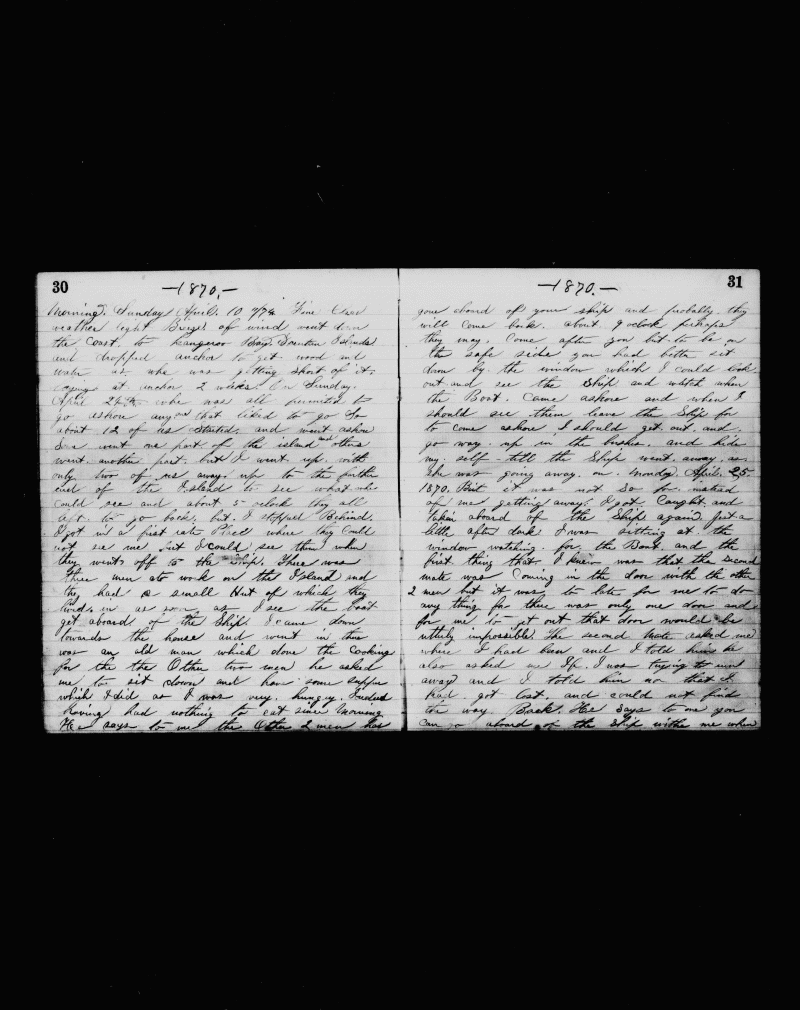 30
—1870,—
Morning. Sunday April. 10 1870 Fine Clear
weather light Brize of wind went down
the Coast. to kangaroo Bay. Islands
and dropped anchor to get wood and
water as whe was getting short of it
laying at anchor 2 weeks. On Sunday.
April 24th whe was all permitted to
go ashore any one that liked to go So
about 12 of us started, and went ashore
Some went one part of the island and others
went another part. but I went up with
only two of us away up to the further
end of the Island to see what whe
could see and about 5 oclock they all
to go back. but I stopped Behind.
I got in a first rate Place where they Could
not see me but I could see them when
they went off to the Ship. There was
three men at work on the Island and
they had a small Hut of which they
lived in as soon as I see the boat
get aboard of the Ship I came down
towards the house and went in there
was an old man which done the cooking
for the the Other two men he asked
me to sit down and have some supper
which I did as I was very hungry Indeed
Having had nothing to eat since Morning
He says to me the Other 2 men has
31
—1870,—
gone aboard of your ship and probably they
will come back. about. 9 oclock perhaps
they may. Come after you but to be on
the safe side you had better sit
down by the window which I could look
out and see the Ship and watch when
the Boat. Came ashore and when I
should see them leave the Ship for
to come ashore I should get out and
go way up in the bushes and hide
my self till the Ship went away. as
she was going away on Monday April 25
1870. But it was not so for instead
of me getting away I got Caught. and
taken aboard of the Ship again Just a
little after dark I was sitting at the
window watching for the Boat. and the
first thing that I knew was that the second
mate was Coming in the door with the other
2 men but it was to late for me to do
any thing for there was only one door and
for me to get out that door would be
utterly impossible. The second Mate asked me
where I had been and I told him he
also asked me If I was trying to run
away and I told him no that I
had got lost. and could not find
the way Back. He says to me you
can go aboard of the Ship withe me when